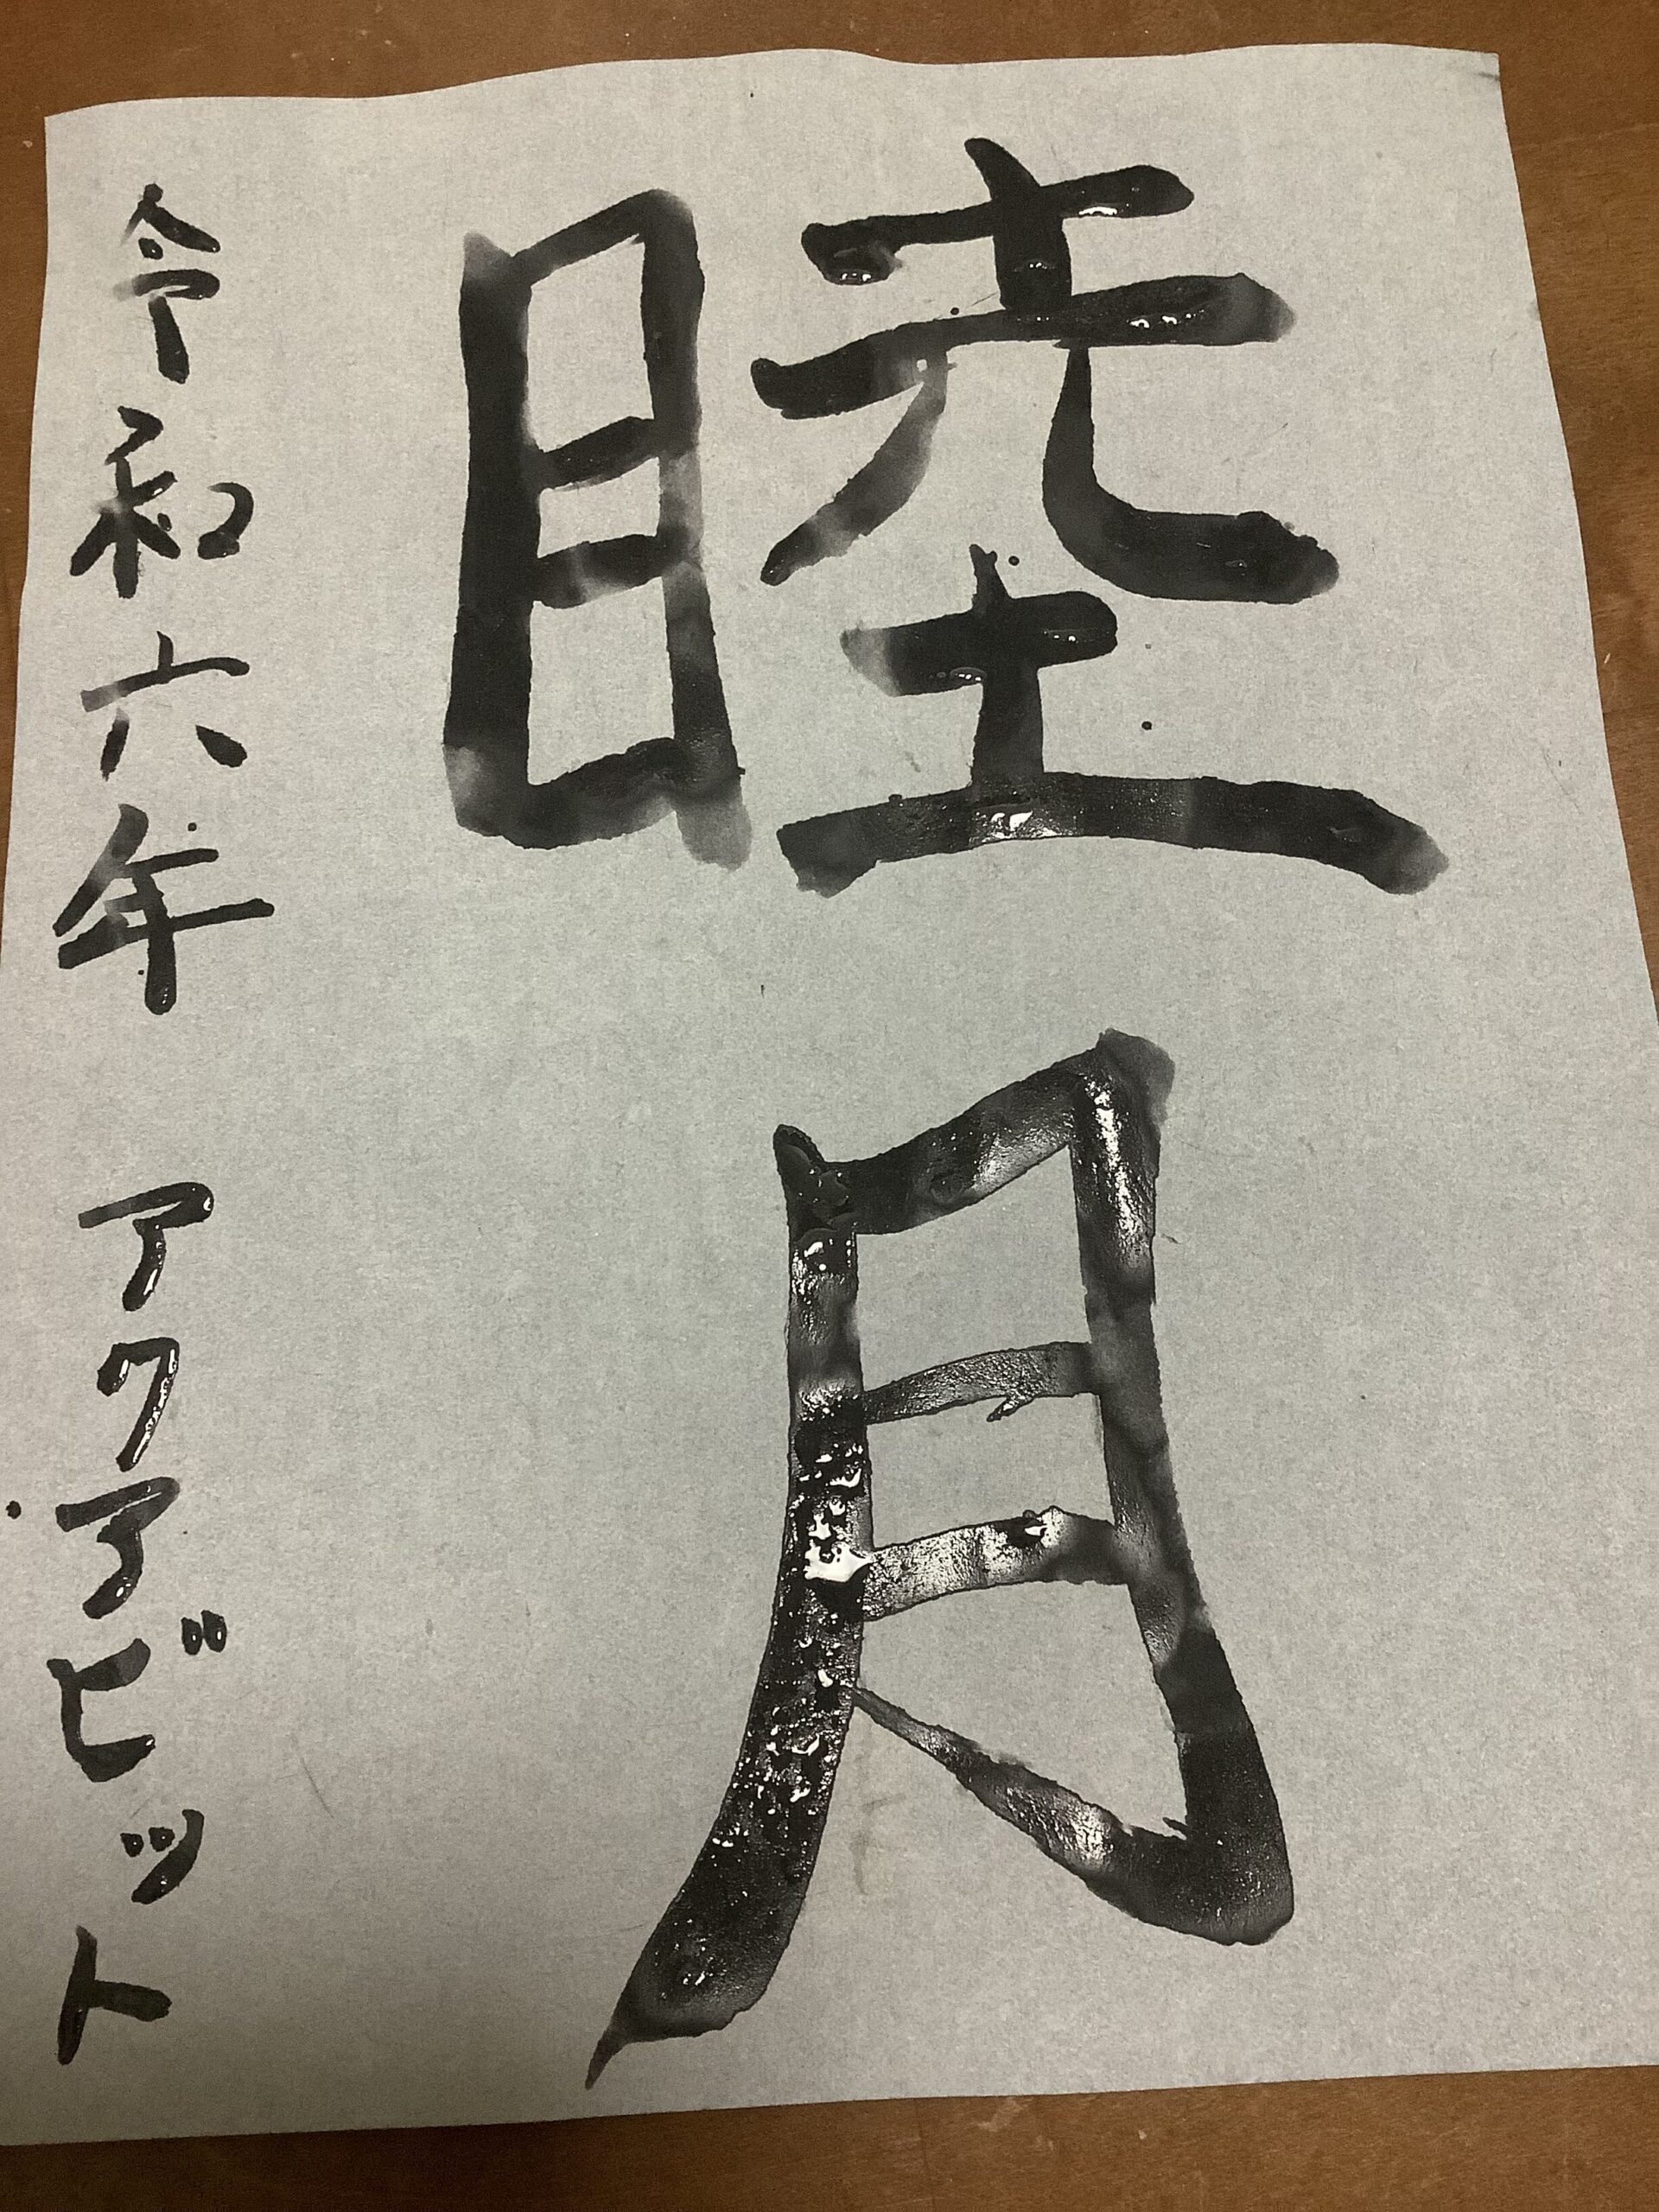 睦月
令和六年 アクアビット